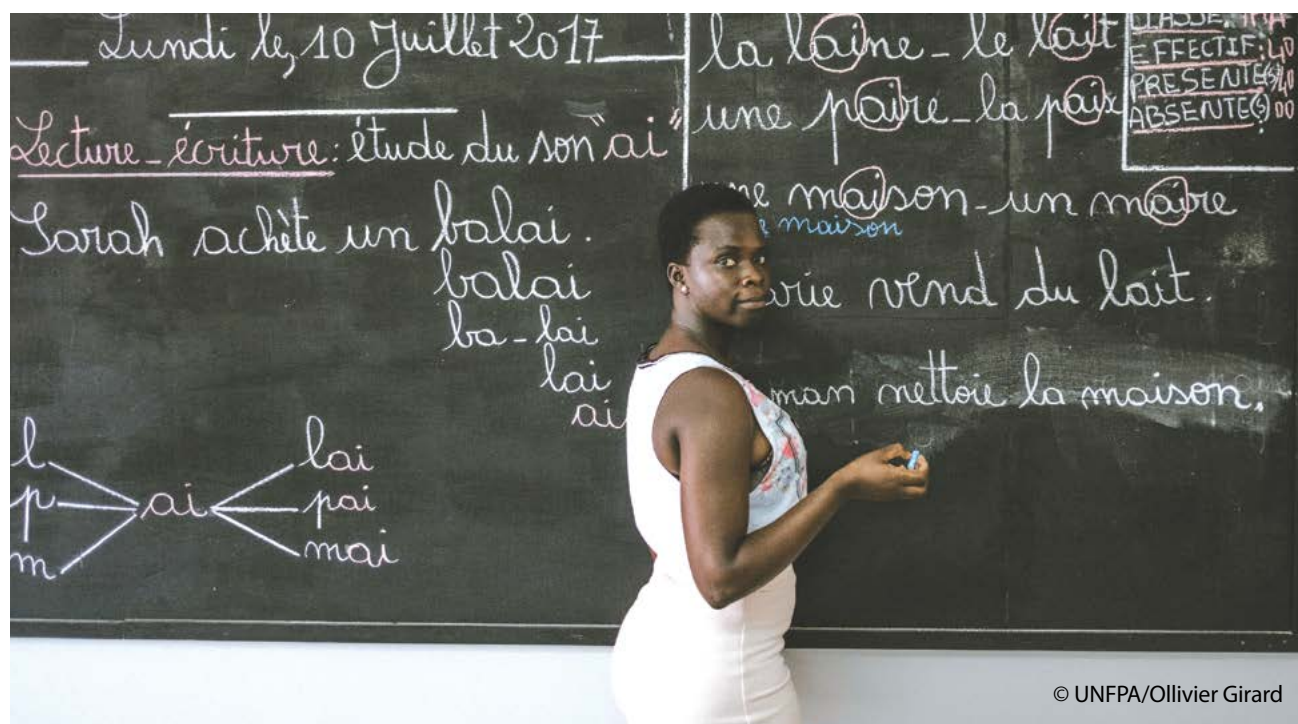 Lundi le, 10 Juillet 2017
Lecture-écriture: étude du son "ai"
Sarah achète un balai.
balai
ba-lai
lai
ai
l
p
m
ai
lai
pai
mai
la laine - le lait
une paire - la paix
maison - un maire
maison
vend du lait.
nettoie la maison.
CLASSE:
EFFECTIF: 40
PRESENTE(S) 40
ABSENTE(S) 00
© UNFPA/Ollivier Girard